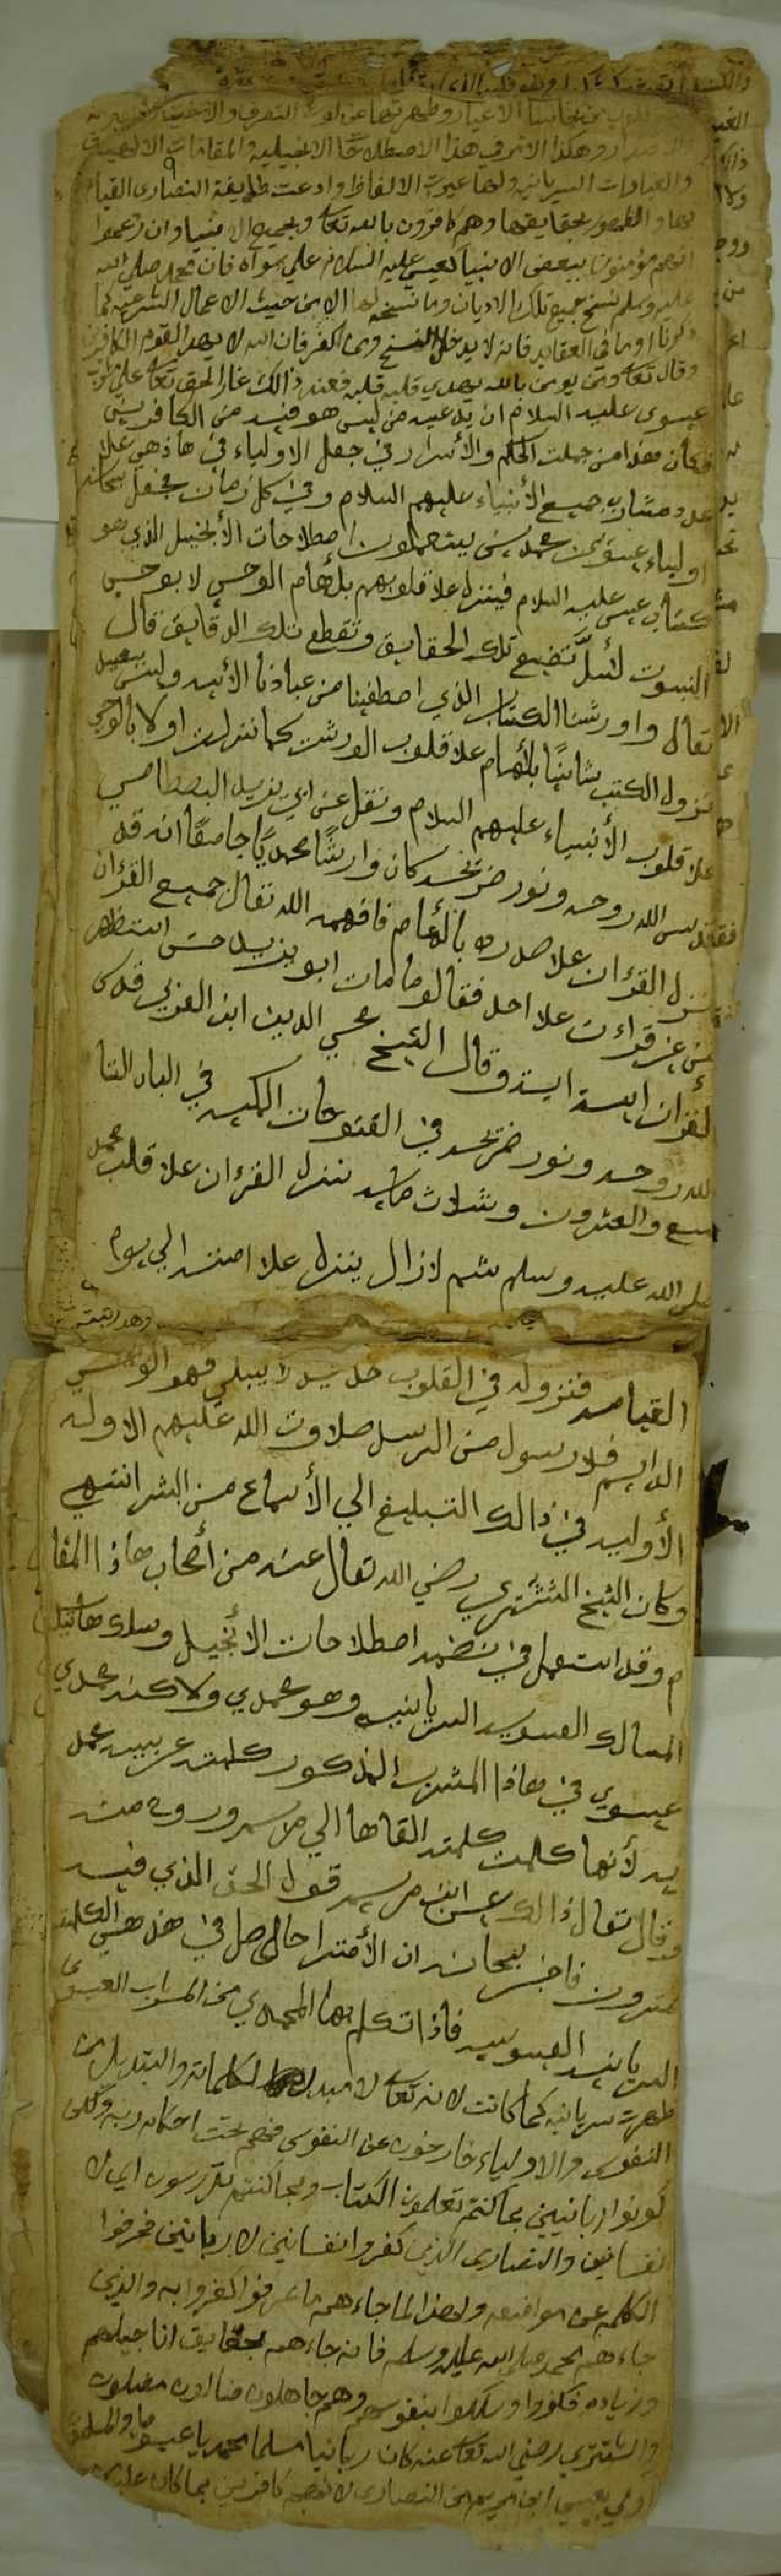 والعبارات السريانية ولها غيرت الالفاظ وادعت طايفة النصارى القيام
بها والظهور بحقايقها وهم كافرون بالله تعا وبجميع الانبيا وان زعموا
انهم مؤمنون ببعض الانبيا كعيسى عليه السلام على سواه فان محمد صلى الله
عليه وسلم نسخ جميع تلك الاديان وما نسخه لها الا من حيث الاعمال الشرعية كما
ذكرنا اوما في العقايد فانه لا يدخل النسخ ومن اكفر فان الله لا يهد القوم الكافرين
وقال تعا ومن يومن بالله يهدي قلبه فعند ذالك غار الحق تعا على
عيسوى عليه السلام ان يدعيه من ليس هو فيه من الكافرين
فكان هذا من جملت الحكم والأسرار في جعل الاولياء في هاذهي علا
عدد مشارب جميع الأنبياء عليهم السلام وفي كل زمان يجعل سبحانه
اولياء عيسويين محمديين يستعملون اصطلاحات الأنجيل الذي هو
كتاب عيسى عليه السلام فينزل علا قلوبهم بلأهام الوحي لا بوحي
النبوت لئلّ تضيع تلك الحقايق وتقطع تلك الدقايق قال
تعال واورثنا الكتاب الذي اصطفينا من عبادنا الأيه وليس
نزول الكتب ثانيًا بلأهام علا قلوب الورثت كما نزلت اولا بالوحي
علا قلوب الأنبياء عليهم السلام ونقل عن ابي يزيد البصطامي
فقدس الله روحه ونور ضريحه كان وارثًا محمديًا جامعًا انه قد
نزل القرءان علا صدره بالأهام فافهمه الله تعال جميع القرءان
من غير قراءت علا احد فقالو ما مات ابو يزيد حتى استظهر
القرءان ايه ايه وقال الشيخ محي الدين ابن العربي قدس
الله روحه ونور ضريحه في الفتوحات المكيه في الباب التا
سع والعشرون وثلاث مايه تنزل القرءان علا قلب محمد
صلى الله عليه وسلم ثم لازال ينزل علا امته الي يوم
القيامه فنزوله في القلوب جديد لا يبلي فهو الوحي
الدايم فلا رسول من الرسل صلاوت الله عليهم الاوله
الأوليه في ذالك التبليغ الي الأسماع من البشر انتهي
وكان الشيخ الششتري رضي الله تعال عنه من أصحاب هاذا المقا
م وقد استعمل في نضمه اصطلاحات الانجيل وسلك هاتيك
المسالك العيسويه السريانيه وهو محمدي ولاكنه محمدي
عيسوي في هاذا المشرب المذكور كلمته عربيه محمد
يه لأنها كلمت كلمته القاها الي مريم وروح منه
وقال تعال ذالك عيسى ابن مريم قول الحق الذي فيه
يمترون فاخبر سبحانه ان الأمترا حاصل في هذهي الكلمه
السريانيه العيسويه فاذا تكلم بها المحمدي من المشراب العيسوي
ظهرت سريانيه كما كانت لانه تعا لا مبدل لكلماته والتبديل من
النفوس والاولياء خارجون عن النفوس فهم تحت احكام ربه ولكن
كونوا ربانيين بما كنتم تعلمون الكتاب وبما كنتم تدرسون اي لا
نفسانيين والنصارى الذين كفروا نفسانين لا ربانين فحرفوا
الكلم عن مواضعه ولهذا لما جاءهم ما عرفوا كفروا به والذي
جاءهم محمد صلى الله عليه وسلم فانه جاءهم بحقايق اناجيلهم
وزيادة فكفروا وسلكوا بنفوسهم وهم جاهلون ضالون مضلون
والششتري رضي الله تعا عنه كان ربانيا مسلما محمديا عيسويا والمسلمون
اولي بعيسى ابن مريم من النصارى لانهم كافرين بما كان عليه